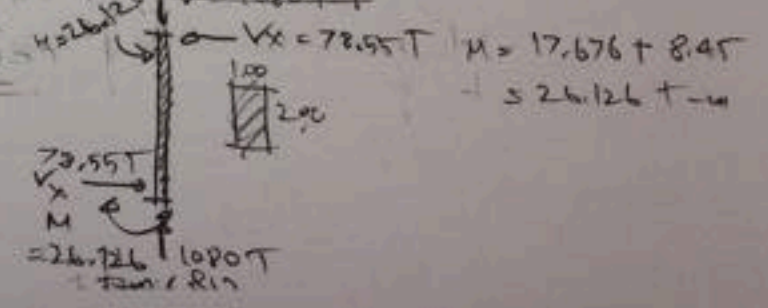 M=26.12
Vx = 78.55T
M = 17.676 + 8.45
= 26.126 T-m
1.00
2.00
78.55T
Vx
M
=26.126
1080T